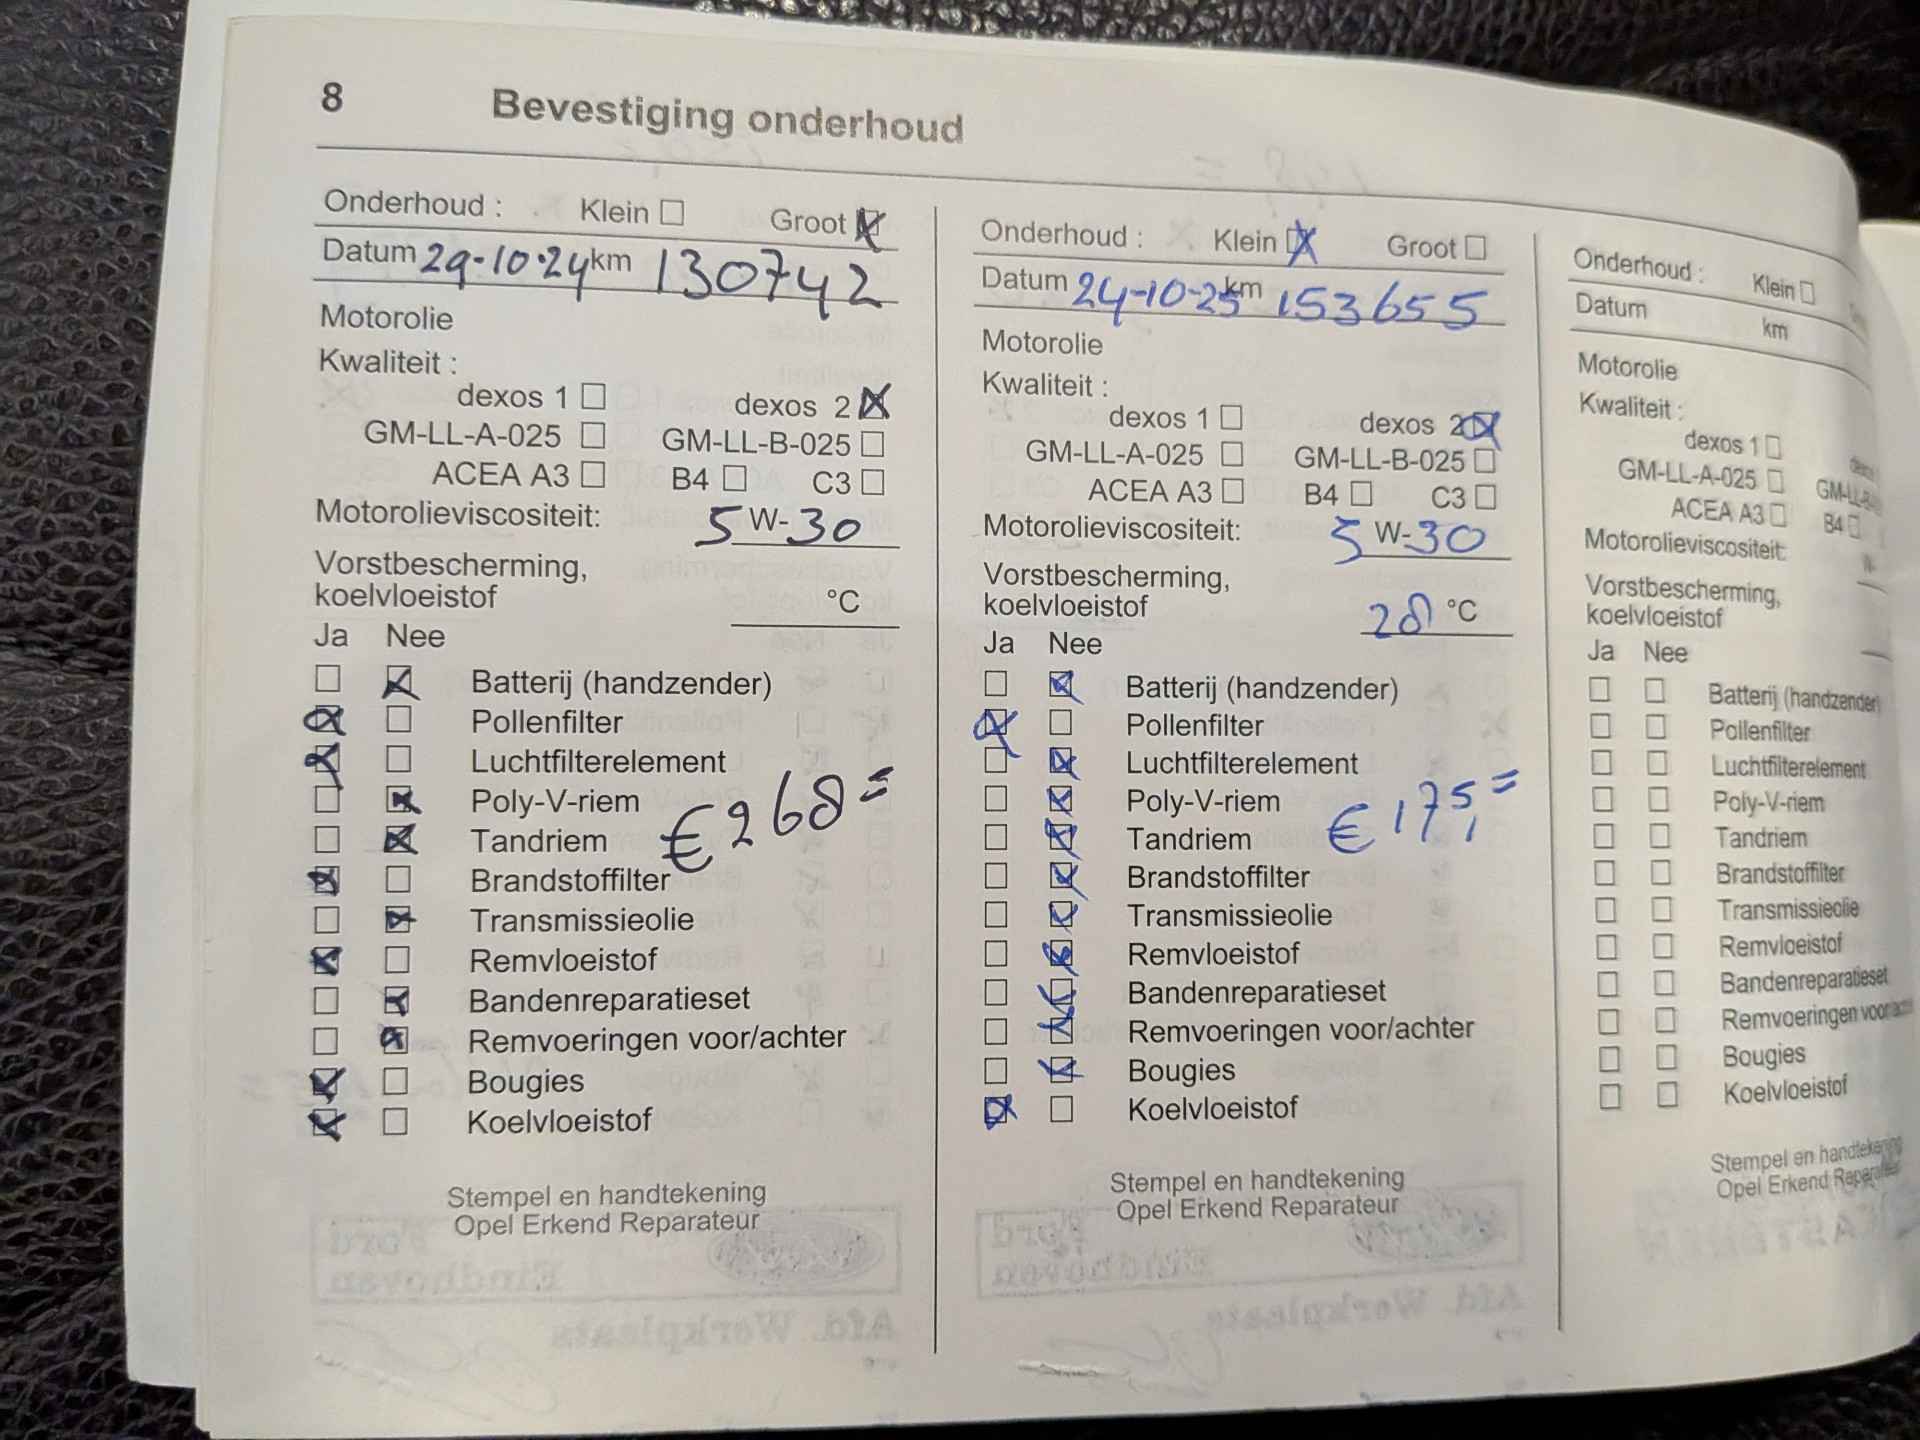 8 Bevestiging onderhoud
Onderhoud : Klein ☐ Groot ☒
Datum 29-10-24 km 130742
Motorolie
Kwaliteit :
dexos 1 ☐ dexos 2 ☒
GM-LL-A-025 ☐ GM-LL-B-025 ☐
ACEA A3 ☐ B4 ☐ C3 ☐
Motorolieviscositeit: 5 W-30
Vorstbescherming,
koelvloeistof °C
Ja Nee
☐ ☒ Batterij (handzender)
☒ ☐ Pollenfilter
☒ ☐ Luchtfilterelement
☐ ☒ Poly-V-riem
☐ ☒ Tandriem
€ 268 =
☒ ☐ Brandstoffilter
☐ ☒ Transmissieolie
☒ ☐ Remvloeistof
☐ ☒ Bandenreparatieset
☐ ☒ Remvoeringen voor/achter
☒ ☐ Bougies
☒ ☐ Koelvloeistof
Stempel en handtekening
Opel Erkend Reparateur
Onderhoud : Klein ☒ Groot ☐
Datum 24-10-25 km 153655
Motorolie
Kwaliteit :
dexos 1 ☐ dexos 2 ☒
GM-LL-A-025 ☐ GM-LL-B-025 ☐
ACEA A3 ☐ B4 ☐ C3 ☐
Motorolieviscositeit: 5 W-30
Vorstbescherming,
koelvloeistof 28 °C
Ja Nee
☐ ☒ Batterij (handzender)
☒ ☐ Pollenfilter
☐ ☒ Luchtfilterelement
☐ ☒ Poly-V-riem
☐ ☒ Tandriem
€ 175, =
☐ ☒ Brandstoffilter
☐ ☒ Transmissieolie
☐ ☒ Remvloeistof
☐ ☒ Bandenreparatieset
☐ ☒ Remvoeringen voor/achter
☐ ☒ Bougies
☒ ☐ Koelvloeistof
Stempel en handtekening
Opel Erkend Reparateur
Onderhoud : Klein ☐
Datum km
Motorolie
Kwaliteit :
dexos 1 ☐
GM-LL-A-025 ☐
ACEA A3 ☐ B4 ☐
Motorolieviscositeit: W-
Vorstbescherming,
koelvloeistof
Ja Nee
☐ ☐ Batterij (handzender)
☐ ☐ Pollenfilter
☐ ☐ Luchtfilterelement
☐ ☐ Poly-V-riem
☐ ☐ Tandriem
☐ ☐ Brandstoffilter
☐ ☐ Transmissieolie
☐ ☐ Remvloeistof
☐ ☐ Bandenreparatieset
☐ ☐ Remvoeringen
☐ ☐ Bougies
☐ ☐ Koelvloeistof
Stempel en handtekening
Opel Erkend Reparateur